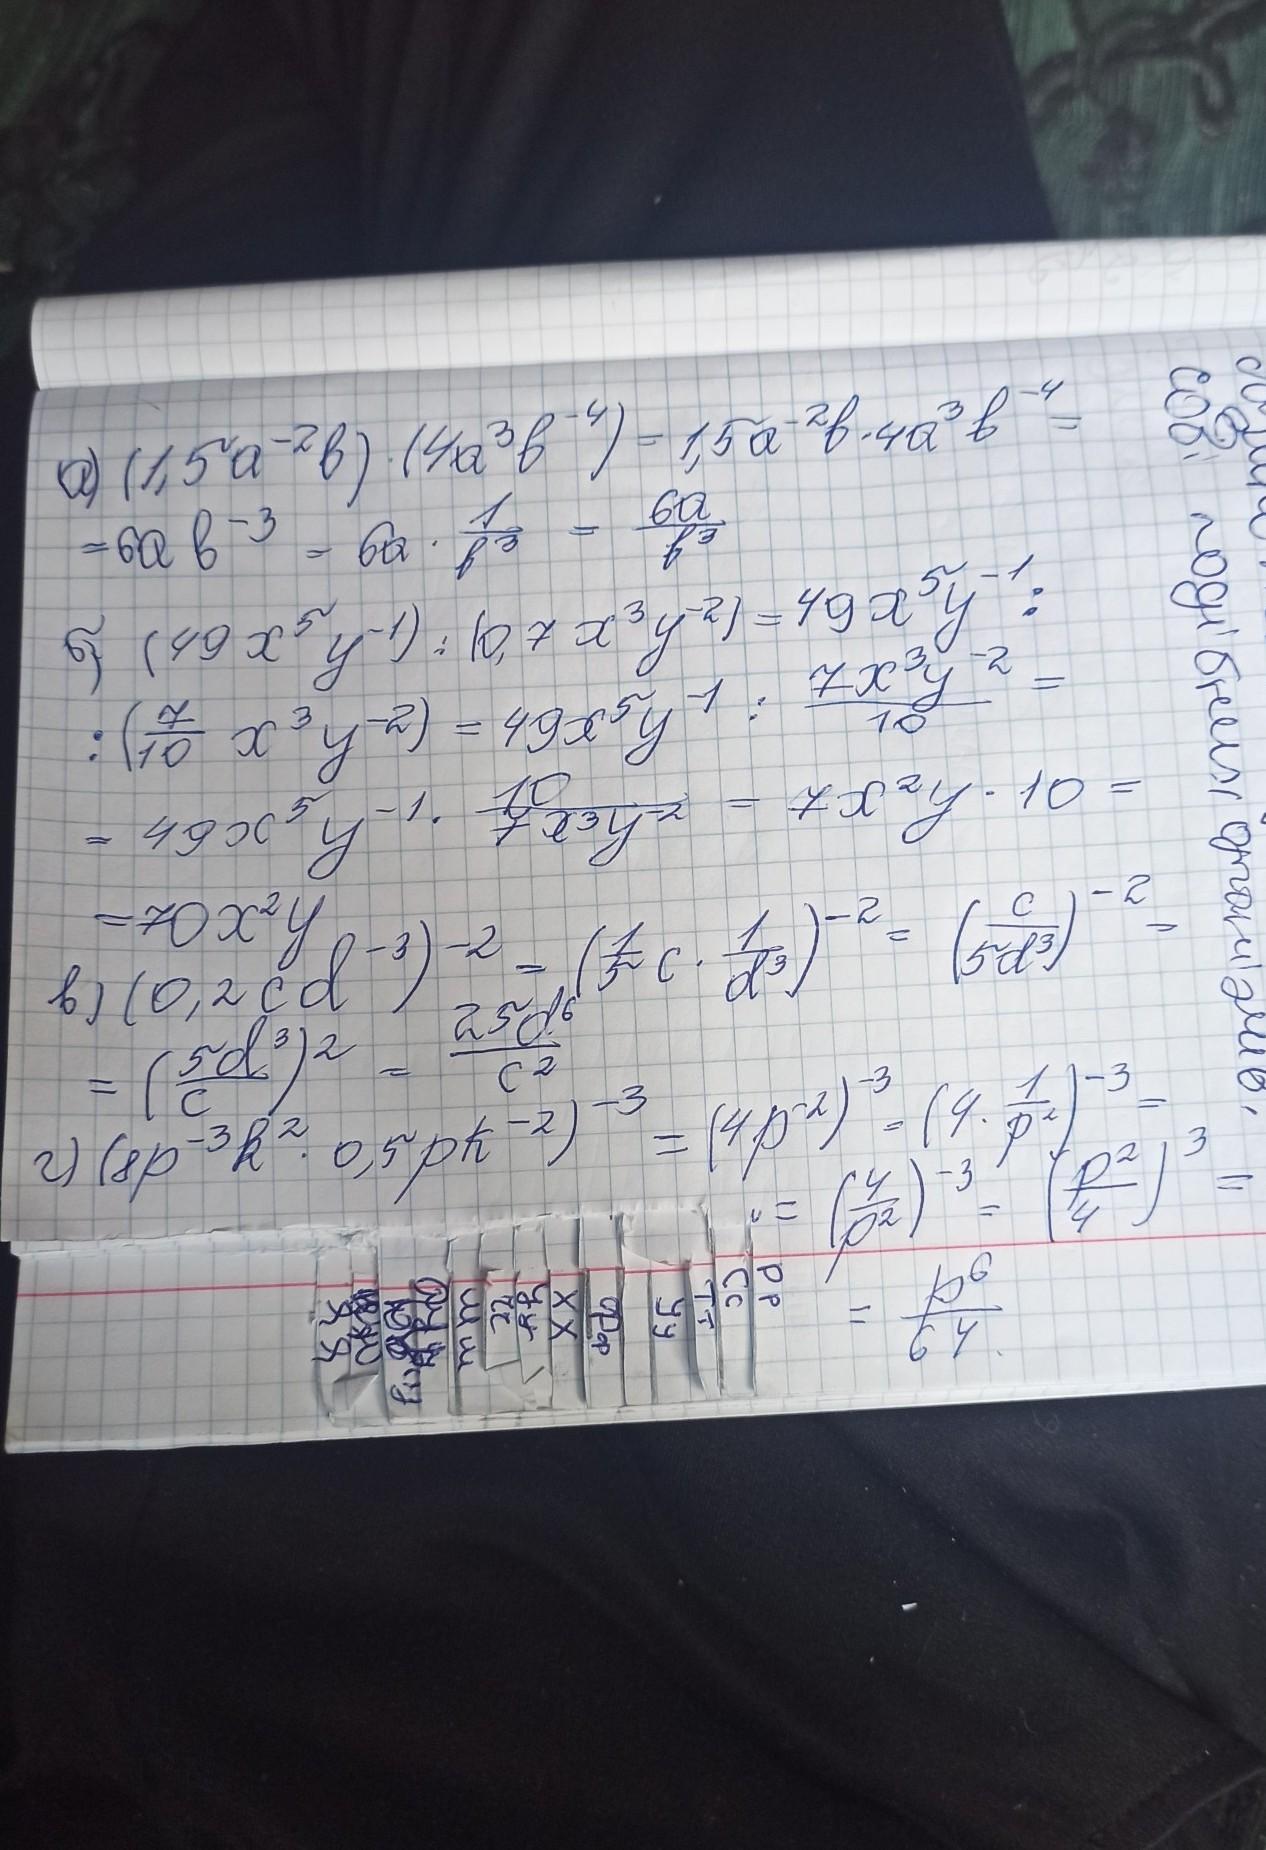 а) (1,5a⁻²b)·(4a³b⁻⁴) = 1,5a⁻²b·4a³b⁻⁴ =
= 6ab⁻³ = 6a · 1/b³ = 6a/b³
б) (49x⁵y⁻¹) : (0,7x³y⁻²) = 49x⁵y⁻¹ :
: (7/10 x³y⁻²) = 49x⁵y⁻¹ : 7x³y⁻²/10 =
= 49x⁵y⁻¹ · 10/7x³y⁻² = 7x²y · 10 =
= 70x²y
в) (0,2cd⁻³)⁻² = (1/5 c · 1/d³)⁻² = (c/5d³)⁻² =
= (5d³/c)² = 25d⁶/c²
г) (8p⁻³k² · 0,5pk⁻²)⁻³ = (4p⁻²)⁻³ = (4 · 1/p²)⁻³ =
= (4/p²)⁻³ = (p²/4)³ =
= p⁶/64.
собі подібних організмів,
Рр
Сс
Тт
Уу
Хх